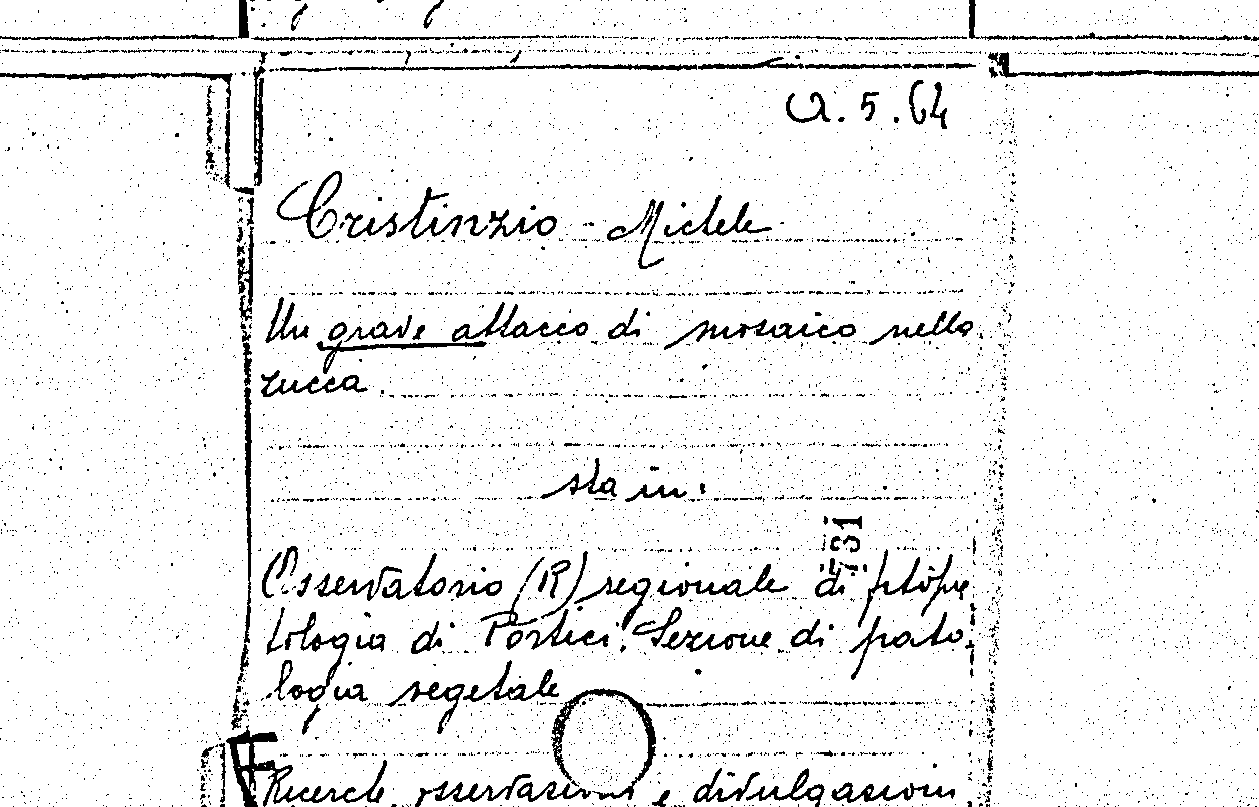 a. 5. 64
Cristinzio - Michele
Un grave attacco di mosaico nella
zucca.
sta in:
731
Osservatorio (R) regionale di fitopa
tologia di Portici. Sezione di pato
logia vegetale
Ricerche, osservazioni e divulgazioni